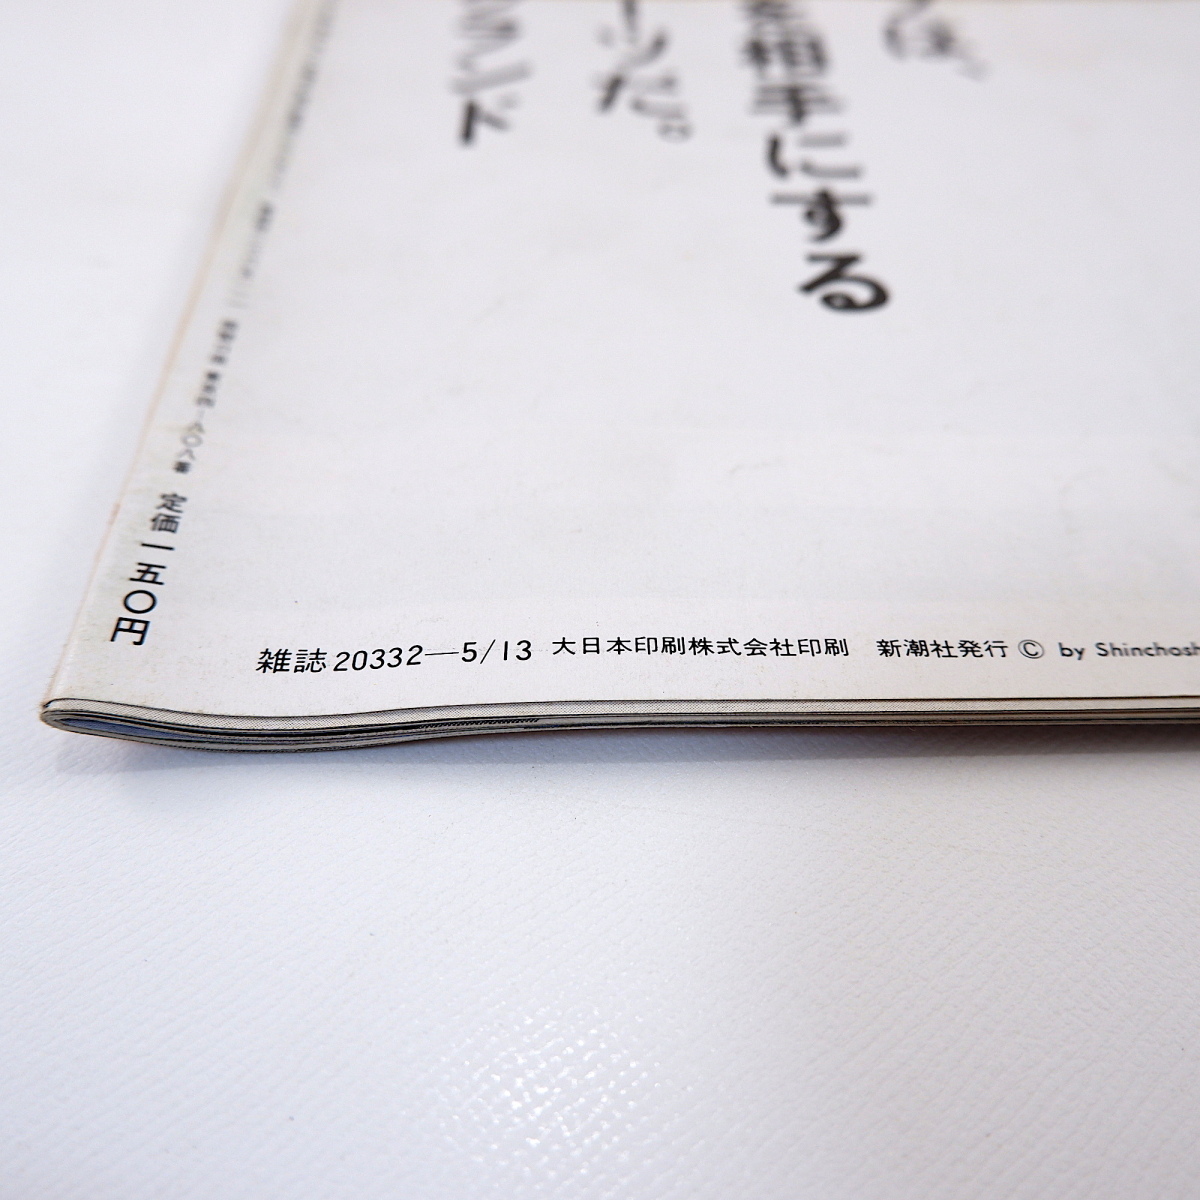 は、
相手にする
ーツだ。
ランド
定価一五〇円
雑誌 20332—5/13 大日本印刷株式会社印刷 新潮社発行 © by Shinchosh